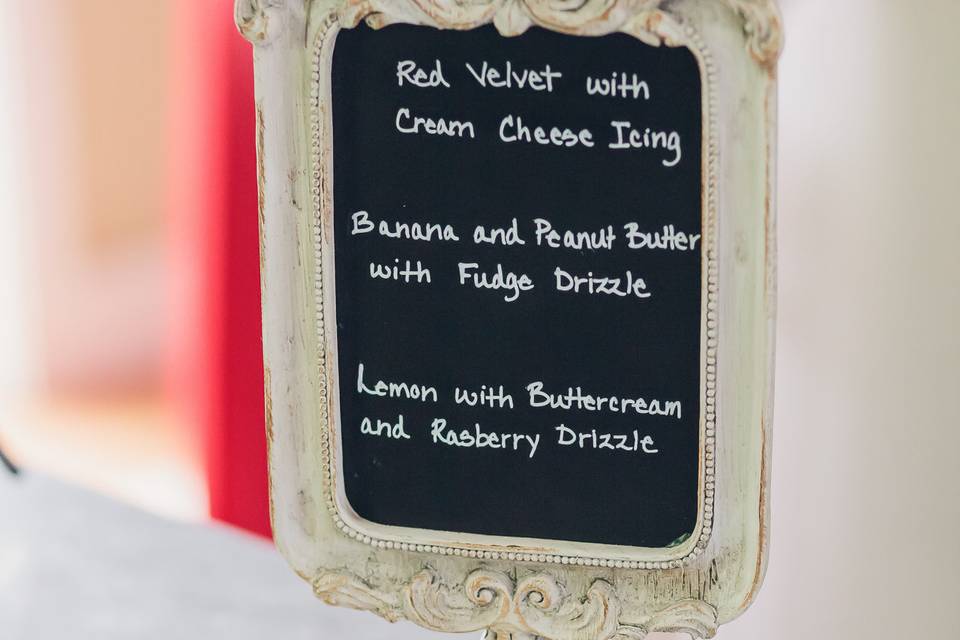 Red Velvet with
Cream Cheese Icing
Banana and Peanut Butter
with Fudge Drizzle
Lemon with Buttercream
and Rasberry Drizzle